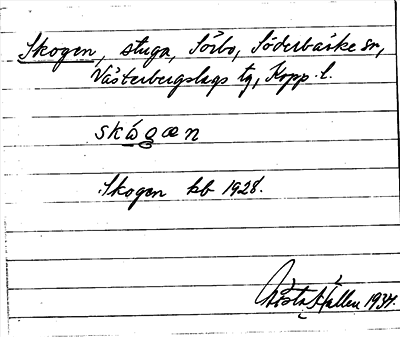 Skogen, stuga, Sörbo, Söderbärke sn,
Västerbergslags tg, Kopp. l.
skógæn
Skogen kb 1928.
Gösta Hallen 1934.